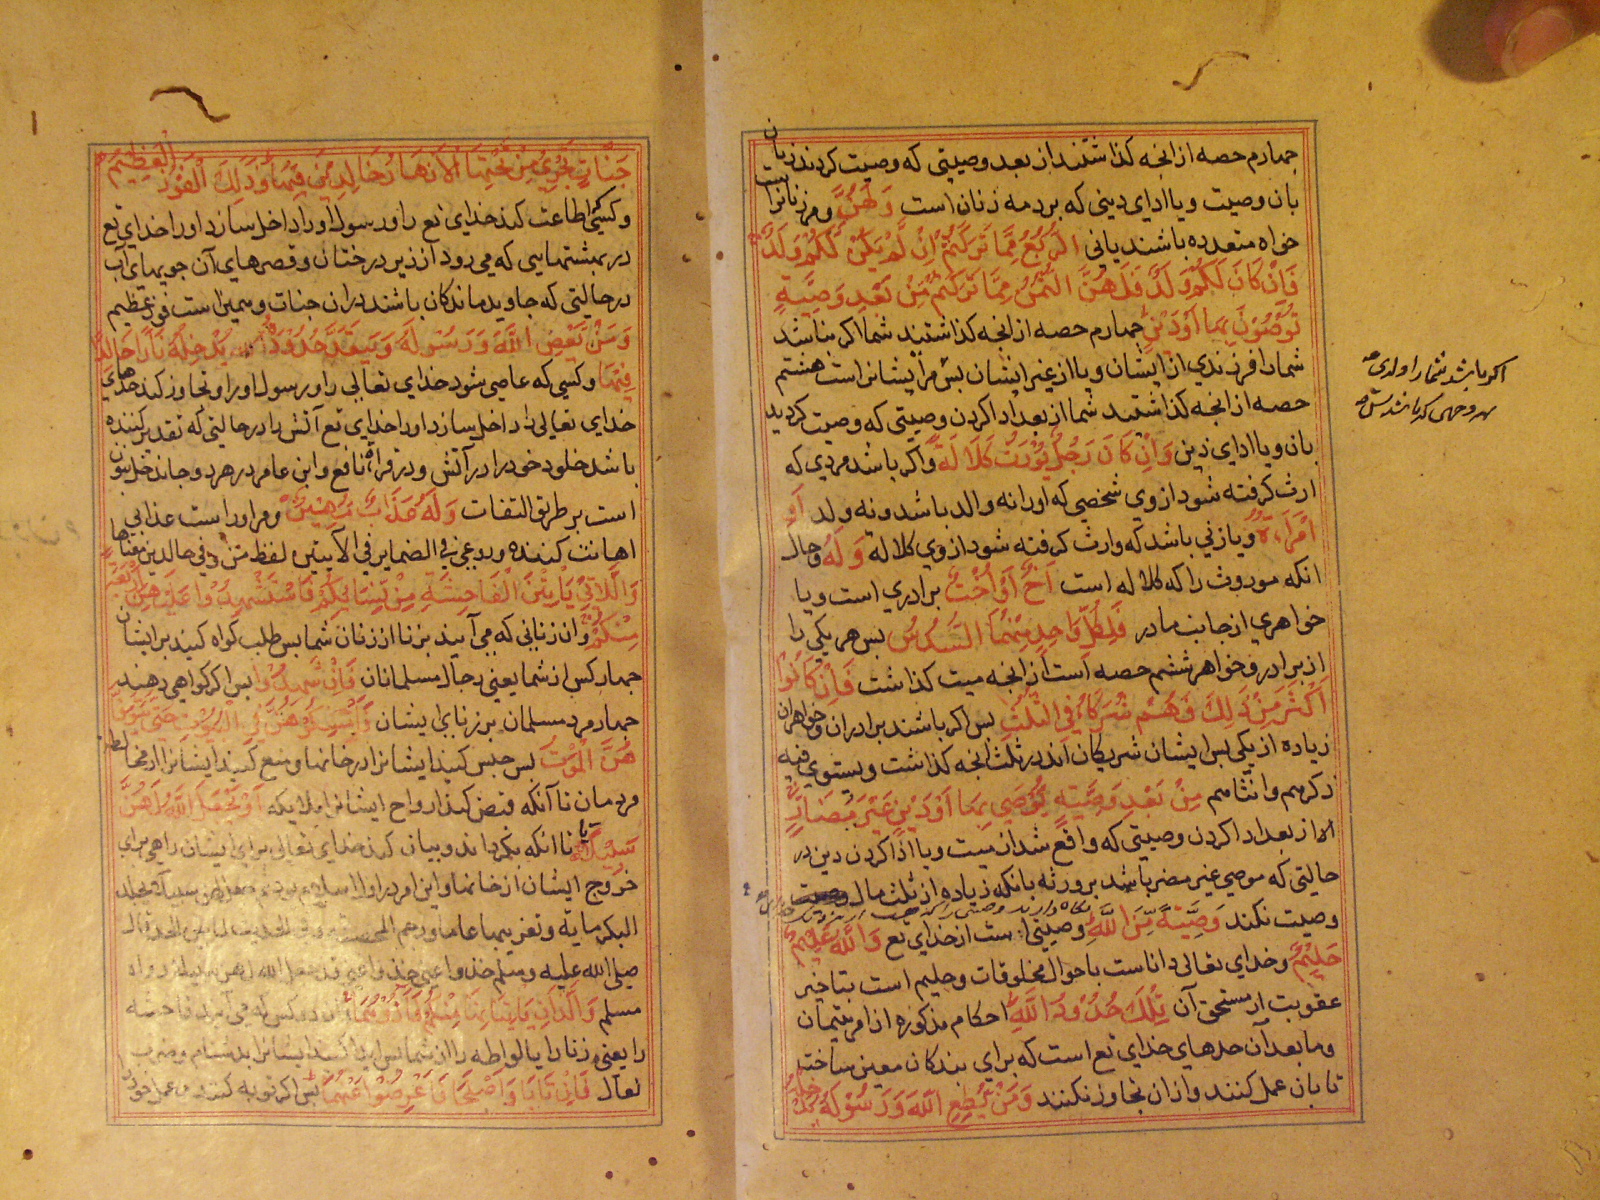 چهارم حصه از انچه کذاشتند از بعد وصیتی که وصیت کردند زنان
بان وصیت و یا ادای دینی که بر ذمه زنان است وَلَهُنَّ و مر زنانراست
خواه متعدده باشند یا نی الرُّبُعُ مِمَّا تَرَكْتُمْ اِنْ لَّمْ يَكُنْ لَّكُمْ وَلَدٌ
فَاِنْ كَانَ لَكُمْ وَلَدٌ فَلَهُنَّ الثُّمُنُ مِمَّا تَرَكْتُمْ مِّنْ بَعْدِ وَصِيَّةٍ
تُوْصُوْنَ بِهَا اَوْ دَيْنٍ چهارم حصه از انچه کذاشتند شما اکر نباشد
شما را فرزندی از ایشان و یا از غیر ایشان بس مر ایشانراست هشتم
حصه از انچه کذاشتید شما از بعد ادا کردن وصیتی که وصیت کردید
بان و یا ادای دین وَاِنْ كَانَ رَجُلٌ يُّوْرَثُ كَلَالَةً و اکر باشد مردی که
ارث کرفته شود از وی شخصی که اورا نه والد باشد و نه ولد اَوِ
امْرَاَةٌ و یا زنی باشد که وارث کرفته شود از وی کلاله وَلَهُ و حال
انکه موروث را که کلاله است اَخٌ اَوْ اُخْتٌ برادری است و یا
خواهری از جانب مادر فَلِكُلِّ وَاحِدٍ مِّنْهُمَا السُّدُسُ بس هر یکی را
از برادر و خواهر ششم حصه است از انچه میت کذاشت فَاِنْ كَانُوْا
اَكْثَرَ مِنْ ذَلِكَ فَهُمْ شُرَكَاءُ فِي الثُّلُثِ بس اکر باشند برادران و خواهران
زیاده از یکی بس ایشان شریکان اند در ثلث انچه کذاشت و یستوی فیه
ذکرهم و انثاهم مِنْ بَعْدِ وَصِيَّةٍ يُّوْصٰى بِهَا اَوْ دَيْنٍ غَيْرَ مُضَارٍّ
از بعد ادا کردن وصیتی که واقع شد از میت و یا ادا کردن دین در
حالتی که موصی غیر مضر باشد بر ورثه بانکه زیاده از ثلث مال
وصیت نکند وَصِيَّةً مِّنَ اللّٰهِ وصیتی است از خدای تع وَاللّٰهُ عَلِيْمٌ
حَلِيْمٌ و خدای تعالی داناست باحوال مخلوقات و حلیم است بتاخیر
عقوبت از مستحق آن تِلْكَ حُدُوْدُ اللّٰهِ احکام مذکوره از امر یتیمان
و ما بعد آن حدهای خدای تع است که برای بندکان معین ساخته
تا بان عمل کنند و از ان تجاوز نکنند وَمَنْ يُّطِعِ اللّٰهَ وَرَسُوْلَهُ يُدْخِلْهُ
اکر باشد شما را ولدی
جَنَّاتٍ تَجْرِيْ مِنْ تَحْتِهَا الْاَنْهَارُ خَالِدِيْنَ فِيْهَا وَذَلِكَ الْفَوْزُ الْعَظِيْمُ
و کسی که اطاعت کند خدای تع را و رسول اورا داخل سازد اورا خدای تع
در بهشتهایی که می رود از زیر درختان و قصرهای آن جویهای آب
در حالتی که جاوید ماندکان باشند در ان جنات و همین است فوز عظیم
وَمَنْ يَّعْصِ اللّٰهَ وَرَسُوْلَهُ وَيَتَعَدَّ حُدُوْدَهُ يُدْخِلْهُ نَارًا خَالِدًا
فِيْهَا و کسی که عاصی شود خدای تعالی را و رسول اورا و تجاوز کند حدهای
خدای تعالی را داخل سازد اورا خدای تع آتش را در حالتی که تقدیر کننده
باشد خلود خود را در آتش و در قراءة نافع و ابن عامر در هر دو جا ندخل بنون
است بر طریق التفات وَلَهُ عَذَابٌ مُّهِيْنٌ و مر اوراست عذابی
اهانت کننده و روعی فی الضمایر فی الآیتین لفظ من و فی خالدین معناها
وَالّٰتِيْ يَاْتِيْنَ الْفَاحِشَةَ مِنْ نِّسَائِكُمْ فَاسْتَشْهِدُوْا عَلَيْهِنَّ اَرْبَعَةً
مِّنْكُمْ و ان زنانی که می آیند بزنا از زنان شما بس طلب کواه کنید بر ایشان
چهار کس از شما یعنی رجال مسلمانان فَاِنْ شَهِدُوْا بس اکر کواهی دهند
چهار مرد مسلمان بر زنای ایشان فَاَمْسِكُوْهُنَّ فِي الْبُيُوْتِ حَتّٰى يَتَوَفّٰ
هُنَّ الْمَوْتُ بس حبس کنید ایشانرا در خانها و منع کنید ایشانرا از مخالطه
مردمان تا آنکه قبض کند ارواح ایشانرا ملایکه اَوْ يَجْعَلَ اللّٰهُ لَهُنَّ
سَبِيْلًا یا تا انکه بکرداند و بیان کند خدای تعالی برای ایشان راهی برای
خروج ایشان از خانها و این امر در اول اسلام بود
البکر مایة و تغریبها عاما و رجم المحصنة و فی الحدیث لما بین الحد قال
صلی الله علیه و سلم خذوا عنی خذوا عنی قد جعل الله لهن سبیلا رواه
مسلم وَالَّذَانِ يَاْتِيَانِهَا مِنْكُمْ فَاٰذُوْهُمَا و ان دو کس که می آیند فاحشه
را یعنی زنا را یا لواطه را از شما بس ایذا کنید ایشانرا بدشنام و ضرب
نعال فَاِنْ تَابَا وَاَصْلَحَا فَاَعْرِضُوْا عَنْهُمَا بس اکر توبه کنند